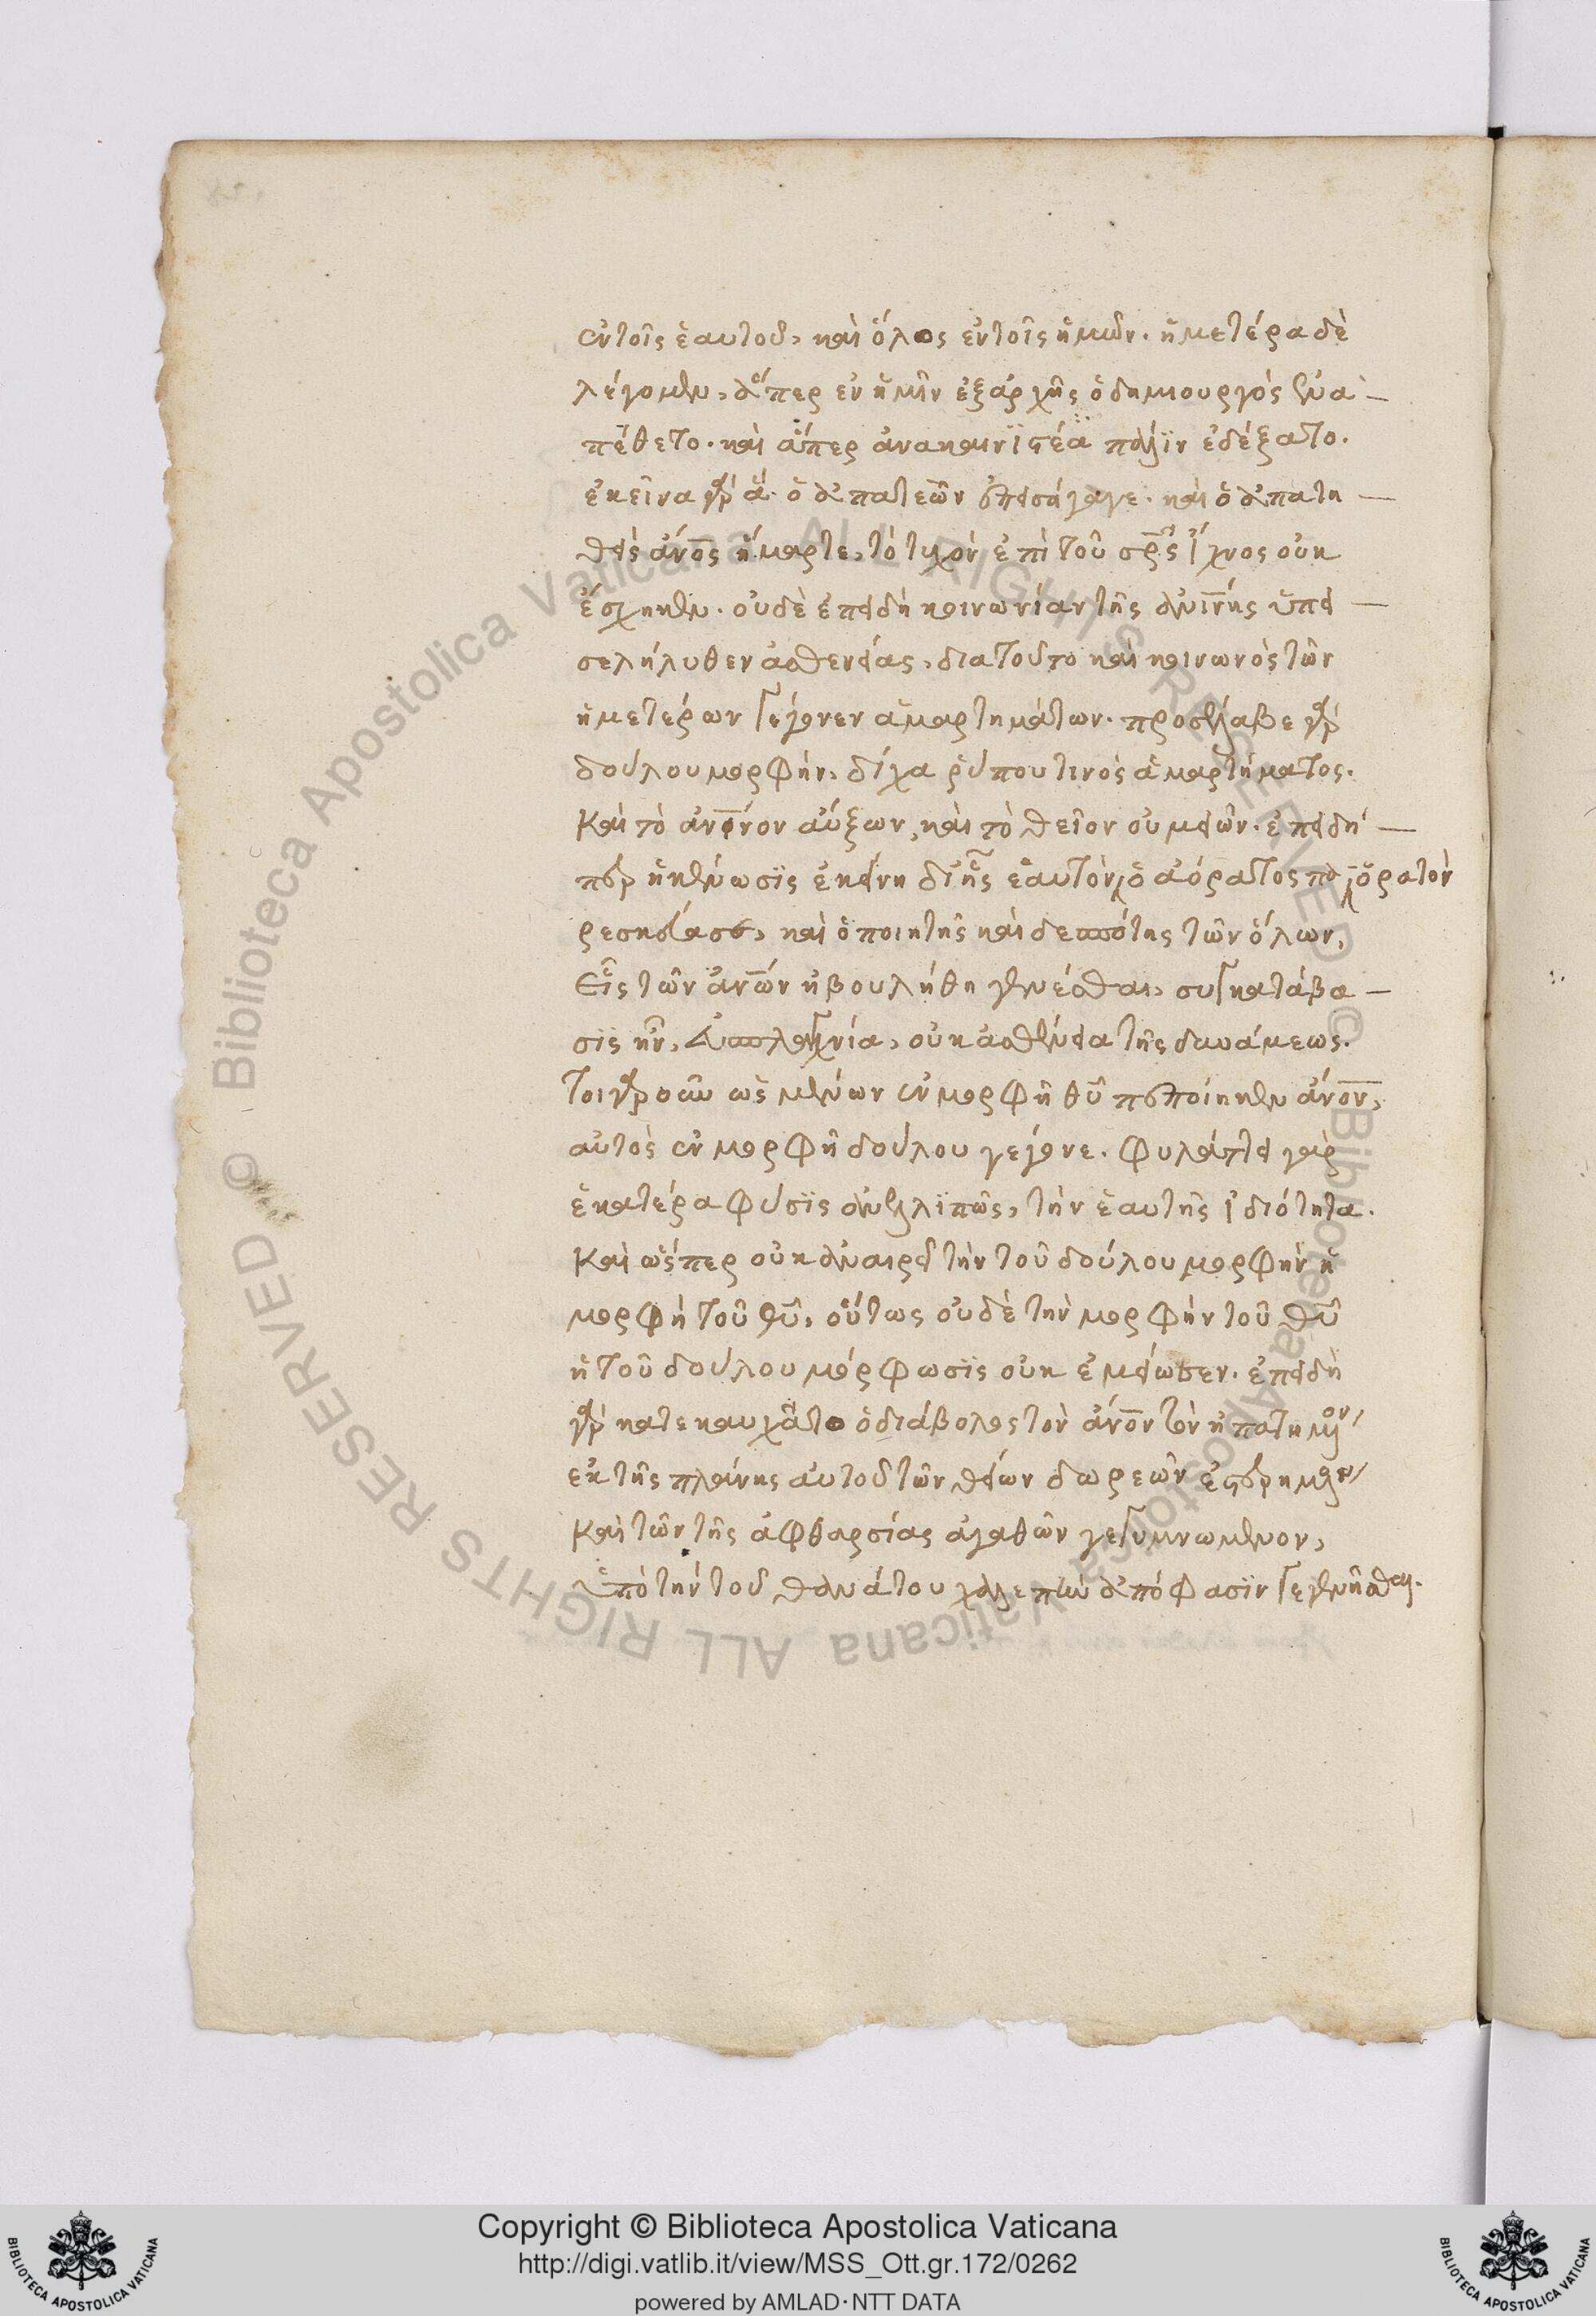 ἐν τοῖς ἑαυτοῦ, καὶ ὅλος ἐν τοῖς ἡμῶν. ἡμέτερα δὲ
λέγομεν, ἅπερ ἐν ἡμῖν ἐξαρχῆς ὁ δημιουργὸς
πέθετο. καὶ ἅπερ ἀνεδέξατο.
ἐκεῖνα γὰρ ἃ ὁ ἀπατεὼν ἐπεισήγαγε. καὶ ὁ ἀπατη
θεὶς ἄνος ἥμαρτε, τὸ τυχὸν ἐπὶ τοῦ σρς ἴχνος οὐκ
ἔσχηκεν. οὐδὲ ἐπειδὴ κοινωνίαν τῆς ἀνίνης ὑπει
σελήλυθεν ἀσθενείας, διατοῦτο καὶ κοινωνὸς τῶν
ἡμετέρων γέγονεν ἁμαρτημάτων. προσέλαβε γὰρ
δούλου μορφὴν, δίχα ῥύπου τινὸς ἁμαρτήματος.
Καὶ τὸ ἀνινον αὔξων, καὶ τὸ θεῖον οὐ μειῶν. ἐπειδή
περ ἡ κένωσις ἐκείνη δι' ἧς ἑαυτὸν ὁ ἀόρατος ὁρατὸν
καὶ ὁ ποιητὴς καὶ δεσπότης τῶν ὅλων,
Εἷς τῶν ἀνων ἠβουλήθη γενέσθαι, συγκατάβα
σις ἦν, εὐσπλαγχνία, οὐκ ἀσθένεια τῆς δυνάμεως.
Τοιγαροῦν ὡς μένων ἐν μορφῇ θυ πεποίηκεν ἄνον,
αὐτὸς ἐν μορφῇ δούλου γέγονε. Φυλάττει γὰρ
ἑκατέρα φύσις ἀνελλιπῶς, τὴν ἑαυτῆς ἰδιότητα.
Καὶ ὥσπερ οὐκ ἀναιρεῖ τὴν τοῦ δούλου μορφὴν ἡ
μορφὴ τοῦ θυ, οὕτως οὐδὲ τὴν μορφὴν τοῦ θυ
ἡ τοῦ δούλου μόρφωσις οὐκ ἐμείωσεν. ἐπειδὴ
γὰρ κατεκαυχᾶτο ὁ διάβολος τὸν ἄνον τὸν ἠπατημένον
ἐκ τῆς πλάνης αὐτοῦ τῶν θείων δωρεῶν ἐστερημένον
Καὶ τῶν τῆς ἀφθαρσίας ἀγαθῶν γεγυμνωμένον,
ὑπὸ τὴν τοῦ θανάτου χαλεπὴν ἀπόφασιν γεγενῆσθαι.
Copyright © Biblioteca Apostolica Vaticana
http://digi.vatlib.it/view/MSS_Ott.gr.172/0262
powered by AMLAD·NTT DATA
© Biblioteca Apostolica Vaticana ALL RIGHTS RESERVED
© Biblioteca Apostolica Vaticana ALL RIGHTS RESERVED
BIBLIOTECA APOSTOLICA VATICANA
BIBLIOTECA APOSTOLICA VATICANA